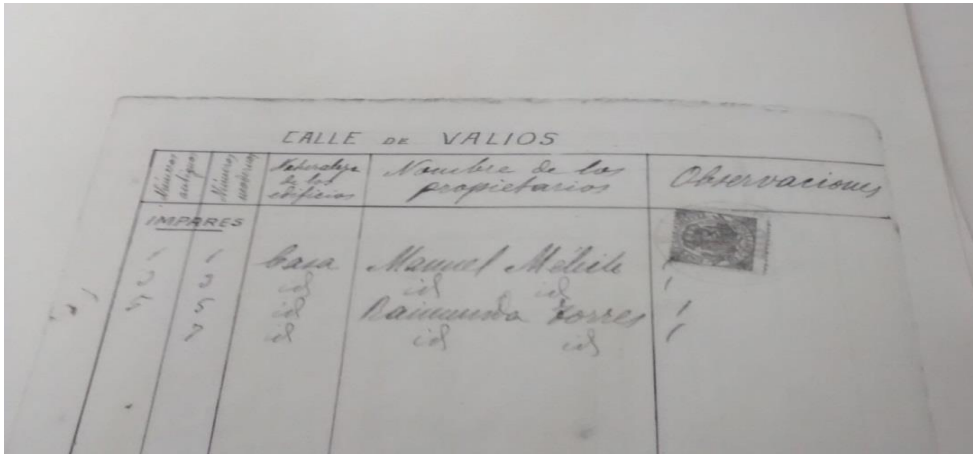 CALLE DE VALIOS
Números antiguos Números modernos Naturaleza de los edificios Nombre de los propietarios Observaciones
IMPARES
1 1 Casa Manuel
3 3 id id id
5 5 id Raimunda Torres
7 id id id